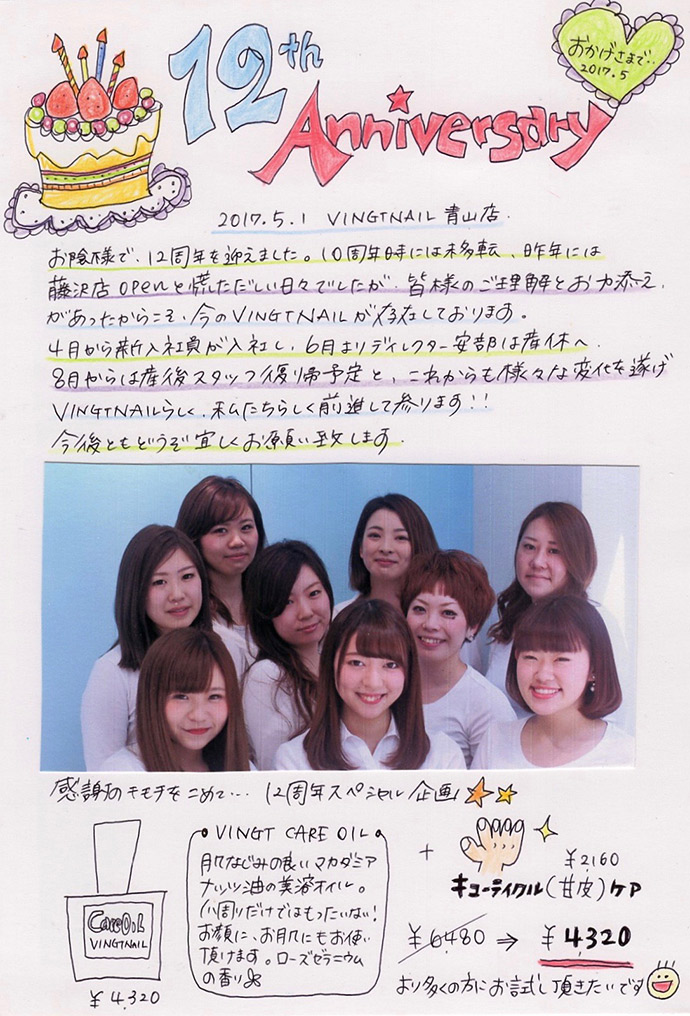 12th
Anniversary
おかげさまで..
2017.5
2017.5.1 VINGTNAIL 青山店.
お陰様で、12周年を迎えました。10周年時には移転、昨年には
藤沢店openと慌ただしい日々でしたが、皆様のご理解とお力添え
があったからこそ、今のVINGTNAILが存在しております。
4月から新入社員が入社し、6月よりディレクター安部は産休へ.
8月からは産後スタッフ復帰予定と、これからも様々な変化を遂げ
VINGTNAILらしく、私たちらしく前進して参ります!!
今後ともどうぞ宜しくお願い致します.
感謝のキモチをこめて… 12周年スペシャル企画
CareOiL
VINGTNAIL
¥4,320
VINGT CARE OIL
肌なじみの良いマカダミア
ナッツ油の美溶オイル。
爪周りだけではもったいない!
お顔に、お肌にもお使い
頂けます。ローズゼラニウム
の香り
+
¥2,160
キューティクル(甘皮)ケア
¥6,480 ⇒ ¥4,320
より多くの方にお試し頂きたいです